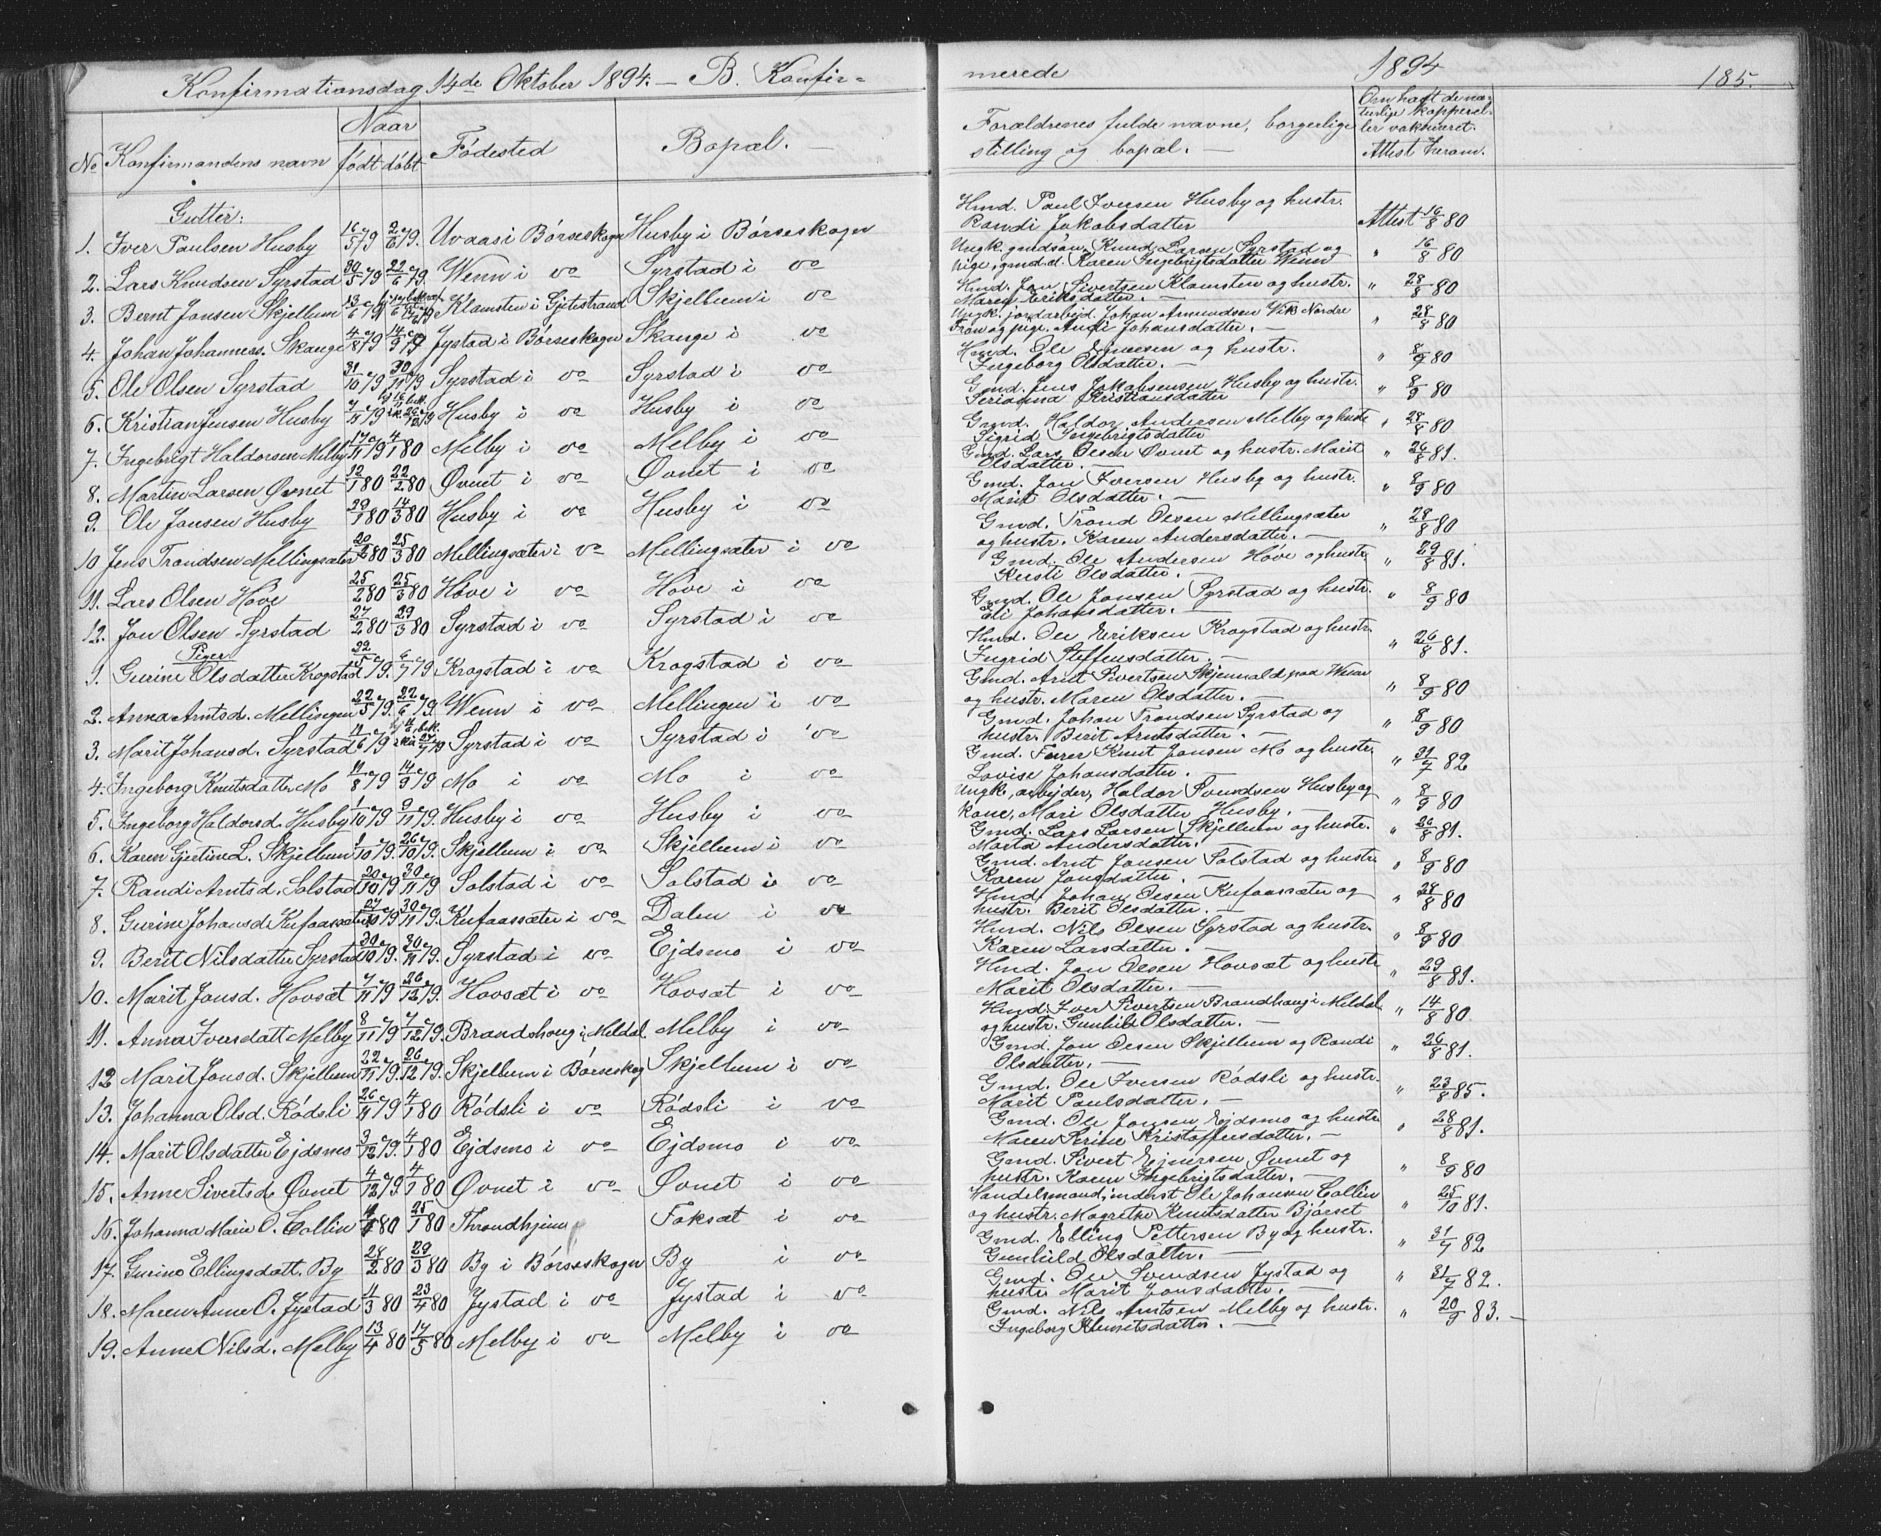 Konfirmationsdag 14de Oktober 1894. — B. Konfir=
No Konfirmandens navn Naar født døbt Fødested Bopæl. —
Gutter:
1. Iver Paulsen Husby 16/5 79 2/6 79. Uvaas i Børseskogn Husby i Børseskogn
2. Lars Knudsen Syrstad 30/5 79 22/6 79 Wenn i do Syrstad i do
3. Bernt Jonsen Skjellum 13/6 79 Klamsten i Gjetestrand Skjellum i do
4. Johan Johanness. Skauge 4/8 79 14/9 79 Jystad i Børseskogn Skauge i do
5. Ole Olsen Syrstad 31/10 79 30/11 79 Syrstad i do Syrstad i do
6. Kristian Jensen Husby 7/11 79 Husby i do Husby i do
7. Ingebrigt Haldorsen Melby 17/11 79 4/1 80 Melby i do Melby i do
8. Martin Larsen Øvnet 12/1 80 22/2 80 Øvnet i do Øvnet i do
9. Ole Jonsen Husby 29/1 80 14/3 80 Husby i do Husby i do
10 Jens Trondsen Mellingsæter 20/2 80 25/3 80 Mellingsæter i do Mellingsæter i do
11. Lars Olsen Høve 25/2 80 25/3 80 Høve i do Høve i do
12. Jon Olsen Syrstad 27/2 80 29/3 80 Syrstad i do Syrstad i do
Piger
1. Gurine Olsdatter Krogstad 22/5 79. 6/7 79 Krogstad i do Krogstad i do
2. Anna Arntsd. Mellingen 22/5 79. 22/6 79. Wenn i do Mellingen i do
3. Marit Johansd. Syrstad 11/6 79 Syrstad i do Syrstad i do
4. Ingeborg Knutsdatter Mo 11/8 79 14/9 79 Mo i do Mo i do
5. Ingeborg Haldorsd. Husby 1/10 79 9/11 79. Husby i do Husby i do
6. Karen Gjertine L. Skjellum 9/10 79. 26/10 79. Skjellum i do Skjellum i do
7. Randi Arntsd. Solstad 20/10 79. 30/11 79 Solstad i do Solstad i do
8. Gurine Johansd. Kufaassæter 27/10 79 30/11 79. Kufaassæter i do Dalen i do
9. Berit Nilsdatter Syrstad 30/10 79. 30/11 79. Syrstad i do Ejdsmo i do
10. Marit Jonsd. Hovsæt 7/11 79 26/12 79. Hovsæt i do Hovsæt i do
11. Anna Iversdatt. Melby 8/11 79 7/12 79. Brandshoug i Meldal Melby i do
12 Marit Jonsd. Skjellum 22/11 79. 26/12 79. Skjellum i Børseskog Skjellum i do
13. Johanna Olsd. Rødsli 26/11 79 4/1 80 Rødsli i do Rødsli i do
14. Marit Olsdatter Ejdsmo 3/12 79. 4/1 80 Ejdsmo i do Ejdsmo i do
15. Anne Sivertsd. Øvnet 4/12 79 4/1 80 Øvnet i do Øvnet i do
16. Johanna Marie O. Collin 80 25/1 80 Throndhjem Foksæt i do
17. Gurine Ellingsdatt. By 28/2 80 29/3 80 By i Børseskogn By i do
18. Maren Anne O. Jystad 11/3 80 23/4 80 Jystad i do Jystad i do
19. Anne Nilsd. Melby 13/4 80 17/5 80 Melby i do Melby i do
merede 1894 185.
Forældrenes fulde navne, borgerlige stilling og bopæl. —
Om haft de naturlige kopper eller vakcineret. Attest herom.
Hmd. Paul Iversen Husby og hustr.
Randi Jakobsdatter Attest 16/8 80
Ungk. gmdsøn, Knud Larsen Syrstad og
pige, gmd.d. Karen Ingebrigtsdatter Wenn " 16/8 80
Hmd. Jon Sivertsen Klamsten og hustr.
Maren Eriksdatter. — " 28/8 80
Ungk. jordarbejd. Johan Amundsen Vik Nordre
Fron og pige. Anli Johansdatter. — " 28/8 80
Hmd. Ole Ejnersen og hustr.
Ingeborg Olsdatter. — " 8/9 80
Gmd. Jens Jakobsensen Husby og hustr.
Serianna Kristiansdatter " 8/9 80
Gmd. Haldor Andersen Melby og hustr.
Sigrid Ingebrigtsdatter " 28/8 80
Gmd. Lars Olsen Øvnet og hustr. Marit
Olsdatter. — " 26/8 81.
Gmd. Jon Iversen Husby og hustr.
Marit Olsdatter. — " 8/9 80
Gmd. Trond Olsen Mellingsæter
og hustr. Karen Andersdatter. — " 28/8 80
Gmd. Ole Andersen Høve og hustr.
Kersti Olsdatter. — " 29/8 81.
Gmd. Ole Jonsen Syrstad og hustr.
Eli Johansdatter. — " 8/9 80
Hmd. Ole Eriksen Krogstad og hustr.
Ingrid Steffensdatter. — " 26/8 81.
Gmd. Arnt Sivertsen Skjenuald paa Wenn
og hustr. Maren Olsdatter. — " 8/9 80
Gmd. Johan Trondsen Syrstad og
hustr. Berit Arntsdatter. — " 8/9 80
Gmd. Knut Jonsen Mo og hustr.
Lovise Johansdatter. — " 31/7 82
Ungk, arbejder, Haldor Svendsen Husby og
kone, Mari Olsdatter Husby. " 8/9 80
Gmd. Lars Larsen Skjellum og hustr.
Marta Andersdatter. " 26/8 81.
Gmd. Arnt Jonsen Solstad og hustr.
Karen Jonsdatter. — " 8/9 80
Hmd. Johan Olsen Kufaassæter og
hustr. Berit Olsdatter. — " 28/8 80
Hmd. Nils Olsen Syrstad og hustr.
Karen Larsdatter. — " 8/9 80
Hmd. Jon Olsen Hovsæt og hustr.
Marit Olsdatter. — " 29/8 81.
Hmd. Iver Sivertsen Brandhaug i Meldal
og hustr. Gunhild Olsdatter. — " 14/8 80
Gmd. Jon Olsen Skjellum og Randi
Olsdatter. — " 26/8 81.
Gmd. Ole Iversen Rødsli og hustr.
Marit Paulsdatter. — " 23/8 85.
Gmd. Ole Jonsen Ejdsmo og hustr.
Maren Serine Kristoffersdatter. — " 28/8 81.
Gmd. Sivert Ejnersen Øvnet og
hustr. Karen Ingebrigtsdatter. — " 8/9 80
Handelsmand, inderst Ole Johansen Collin
og hustr. Magrethe Knutsdatter Bjørset " 25/10 81.
Gmd. Elling Pettersen By og hustr.
Gunhild Olsdatter. — " 31/7 82
Gmd. Ole Svendsen Jystad og
hustr. Marit Jonsdatter. — " 31/7 82.
Gmd. Nils Arntsen Melby og hustr.
Ingeborg Klemetsdatter. — " 20/9 83. —